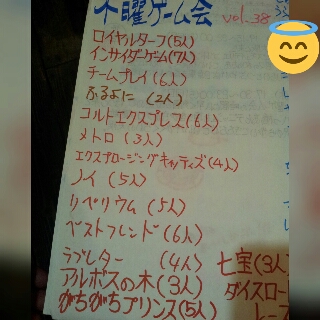 木曜ゲーム会 vol.38
ロイヤルターフ(5人)
インサイダーゲーム(7人)
チームプレイ(6人)
ふるよに(2人)
コルトエクスプレス(6人)
メトロ(3人)
エクスプロージングキティズ(4人)
ノイ(5人)
リベリウム(5人)
ベストフレンド(6人)
ラブレター(4人)
アルボスの木(3人)
がちがちプリンス(5人)
七宝(3人)
ダイスロー
レース